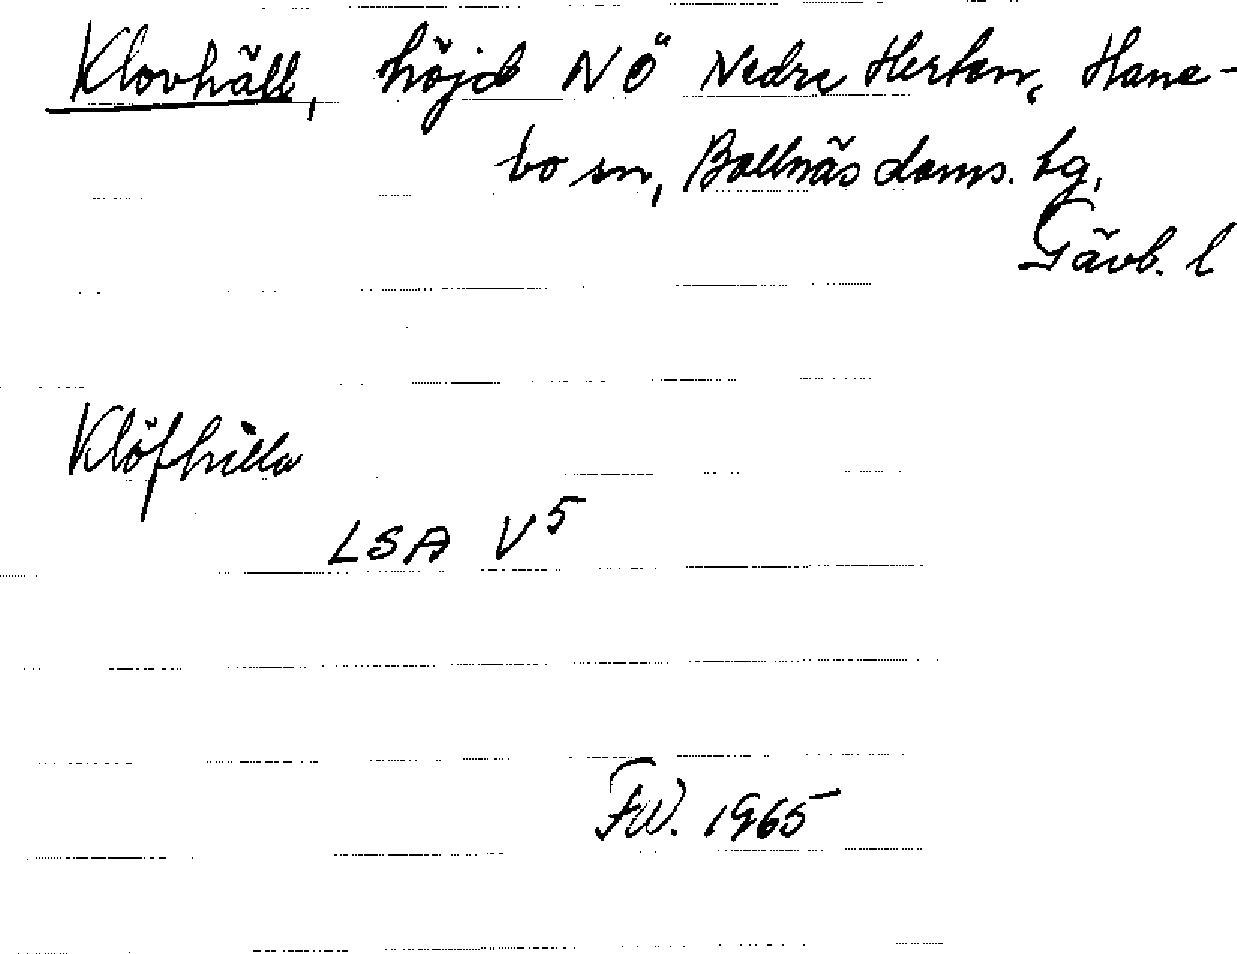 Klovhäll, höjd NÖ Nedre Herten, Hane-
bo sn, Bollnäs doms. tg,
Gävb. l
Klöfhilla
LSA V5
FW. 1965